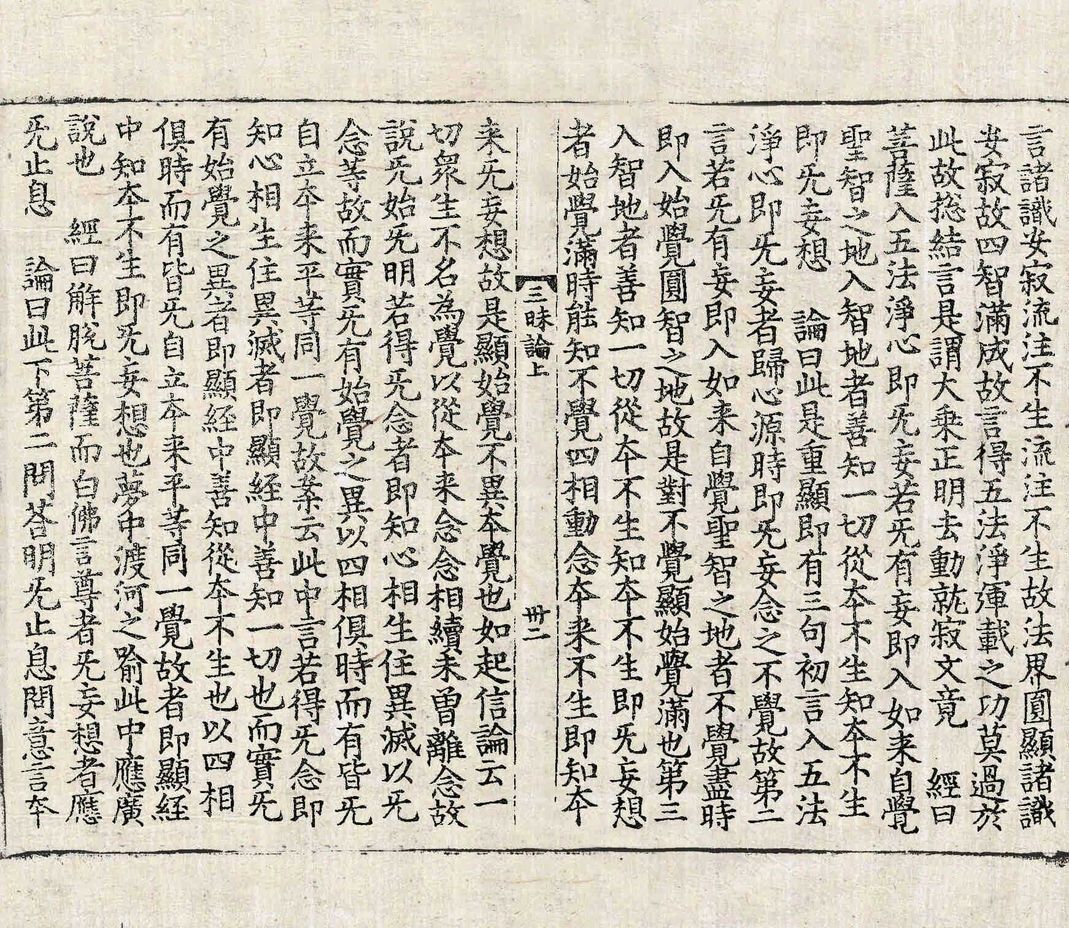 言諸識安寂流注不生流注不生故法界圓顯諸識
安寂故四智滿成故言得五法淨運載之功莫過於
此故捴結言是謂大乘正明去動就寂文竟　經曰
菩薩入五法淨心即旡妄若旡有妄即入如来自覺
聖智之地入智地者善知一切從夲不生知夲不生
即旡妄想　論曰此是重顯即有三句初言入五法
淨心即旡妄者歸心源時即旡妄念之不覺故第二
言若旡有妄即入如来自覺聖智之地者不覺盡時
即入始覺圓智之地故是對不覺顯始覺滿也第三
入智地者善知一切從夲不生知夲不生即旡妄想
者始覺滿時能知不覺四相動念夲来不生即知夲
三昧論上　卅二
来旡妄想故是顯始覺不異夲覺也如起信論云一
切衆生不名為覺以從夲来念念相續未曽離念故
說旡始旡明若得旡念者即知心相生住異滅以旡
念等故而實旡有始覺之異以四相俱時而有皆旡
自立夲来平等同一覺故案云此中言若得旡念即
知心相生住異滅者即顯経中善知一切也而實旡
有始覺之異者即顯経中善知從夲不生也以四相
俱時而有皆旡自立夲来平等同一覺故者即顯経
中知夲不生即旡妄想也夢中渡河之喻此中應廣
說也　經曰解脫菩薩而白佛言尊者旡妄想者應
旡止息　論曰此下第二問荅明旡止息問意言夲